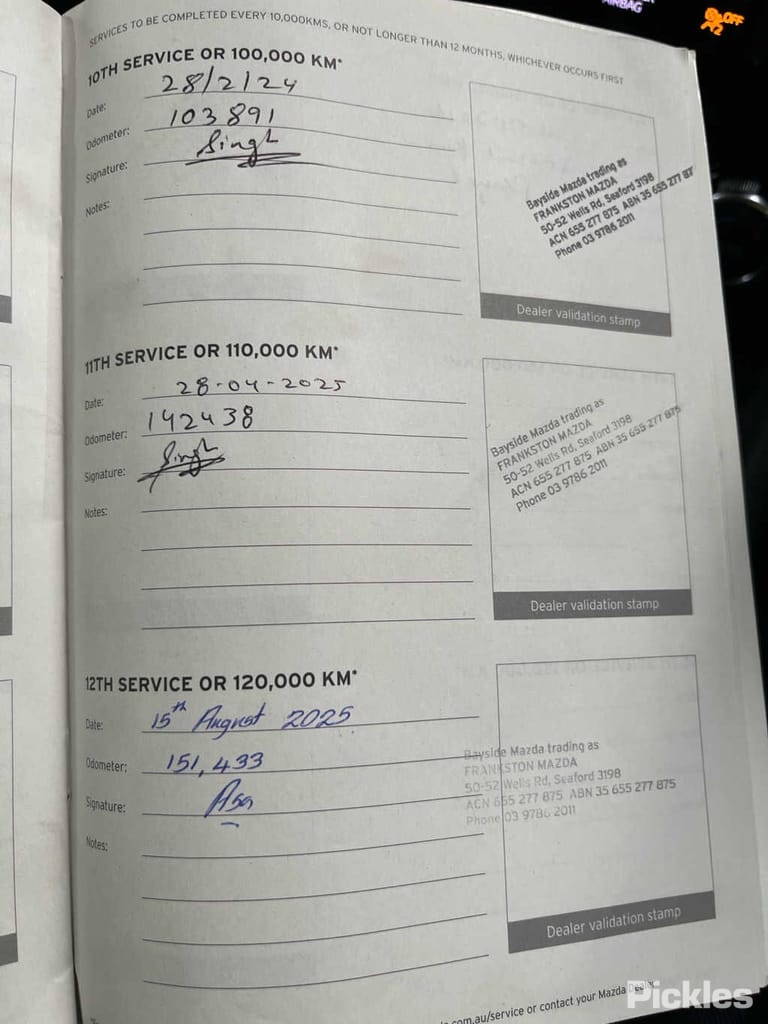 AIRBAG
OFF
SERVICES TO BE COMPLETED EVERY 10,000KMS, OR NOT LONGER THAN 12 MONTHS, WHICHEVER OCCURS FIRST
10TH SERVICE OR 100,000 KM*
Date: 28/2/24
Odometer: 103891
Signature: Singh
Notes:
Bayside Mazda trading as
FRANKSTON MAZDA
50-52 Wells Rd, Seaford 3198
ACN 655 277 875 ABN 35 655 277 87
Phone 03 9786 2011
Dealer validation stamp
11TH SERVICE OR 110,000 KM*
Date: 28-04-2025
Odometer: 142438
Signature: Singh
Notes:
Bayside Mazda trading as
FRANKSTON MAZDA
50-52 Wells Rd, Seaford 3198
ACN 655 277 875 ABN 35 655 277 875
Phone 03 9786 2011
Dealer validation stamp
12TH SERVICE OR 120,000 KM*
Date: 15th August 2025
Odometer: 151,433
Signature:
Notes:
Bayside Mazda trading as
FRANKSTON MAZDA
50-52 Wells Rd, Seaford 3198
ACN 655 277 875 ABN 35 655 277 875
Phone 03 9786 2011
Dealer validation stamp
.com.au/service or contact your Mazda Dealer
Pickles